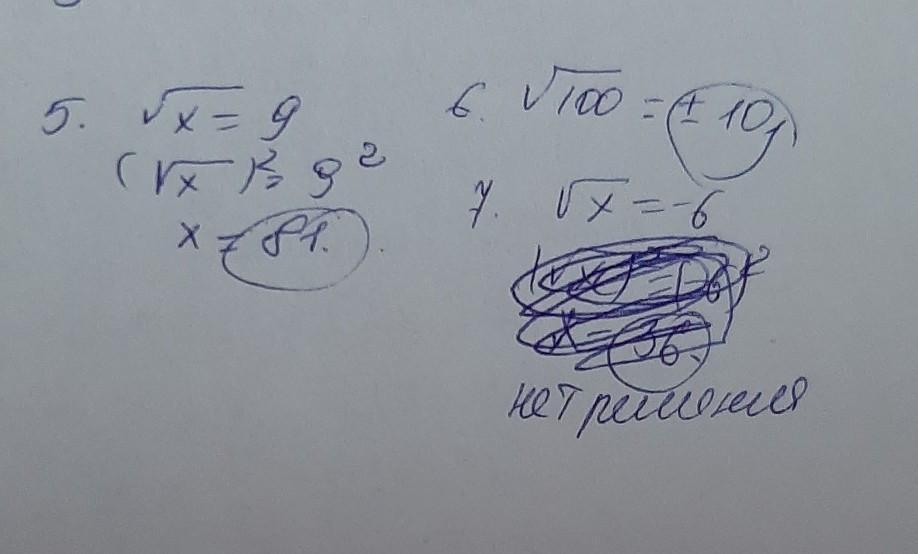 5. √x = 9
(√x)² = 9²
x = 81.
6. √100 = ± 10,
7. √x = -6
нет решения